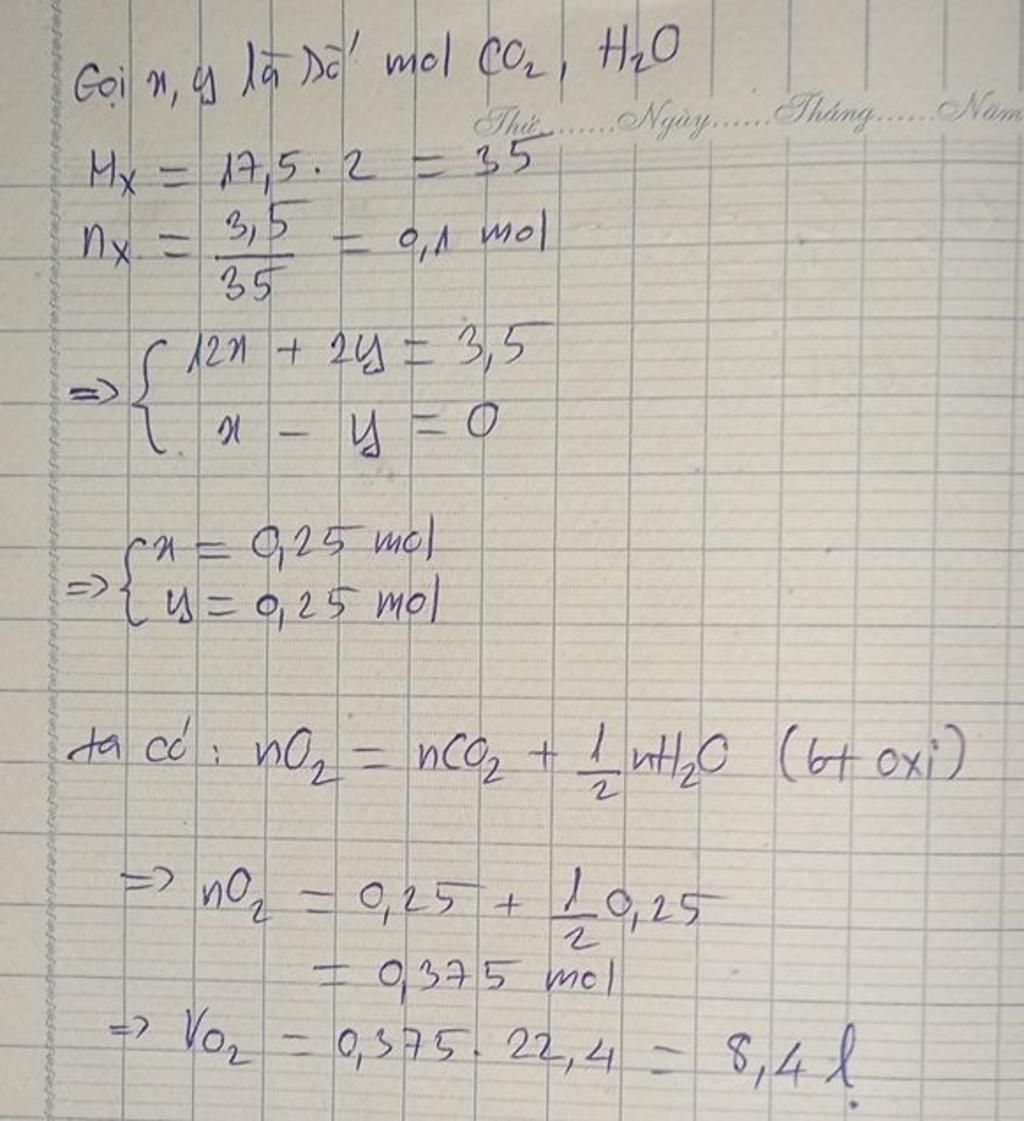 Gọi x, y là số mol CO₂, H₂O
Thứ.......Ngày......Tháng......Năm
Mx = 17,5 . 2 = 35
nx = 3,5/35 = 0,1 mol
=> { 12x + 2y = 3,5
x - y = 0
=> { x = 0,25 mol
y = 0,25 mol
ta có : nO₂ = nCO₂ + 1/2 nH₂O (bt oxi)
=> nO₂ = 0,25 + 1/2 0,25
= 0,375 mol
=> VO₂ = 0,375 . 22,4 = 8,4 l.